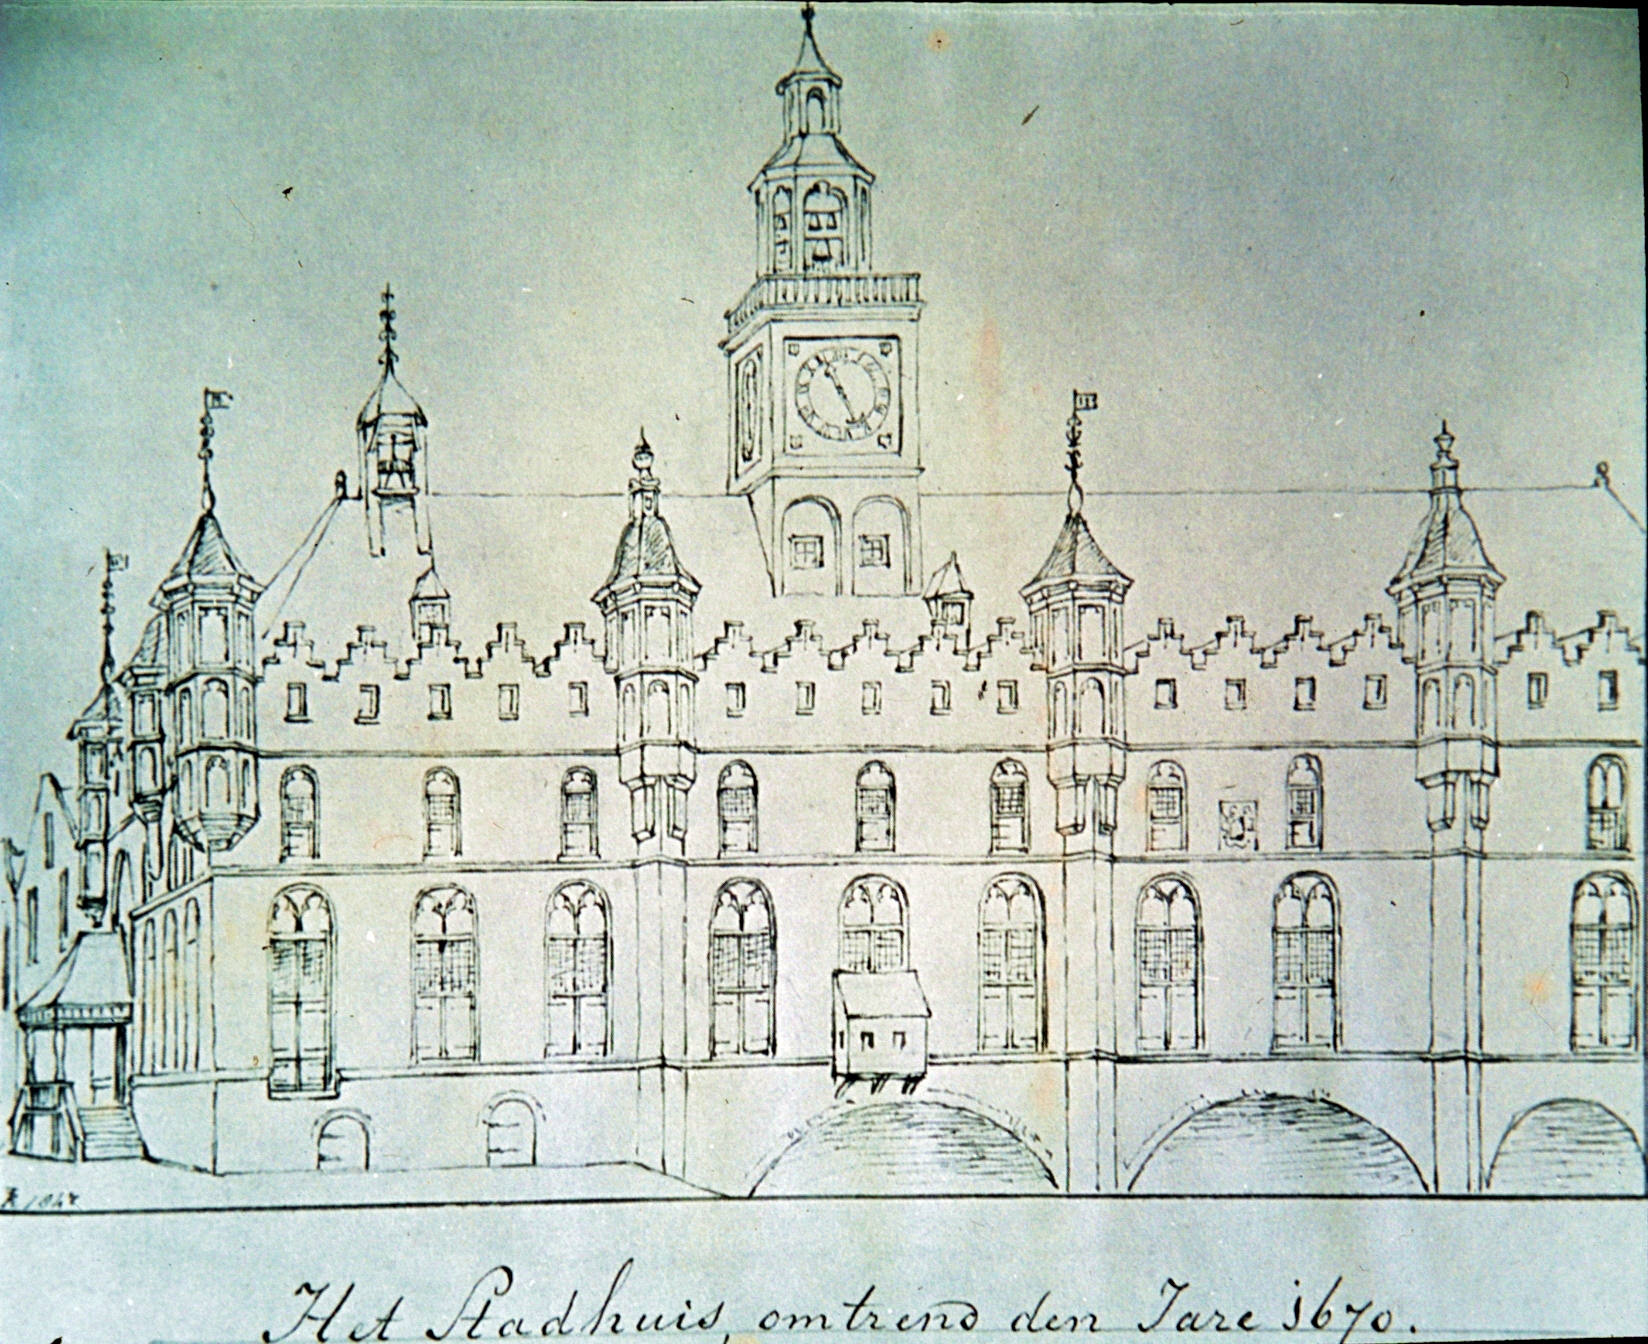 Het Stadhuis, omtrend den Jare 1670.